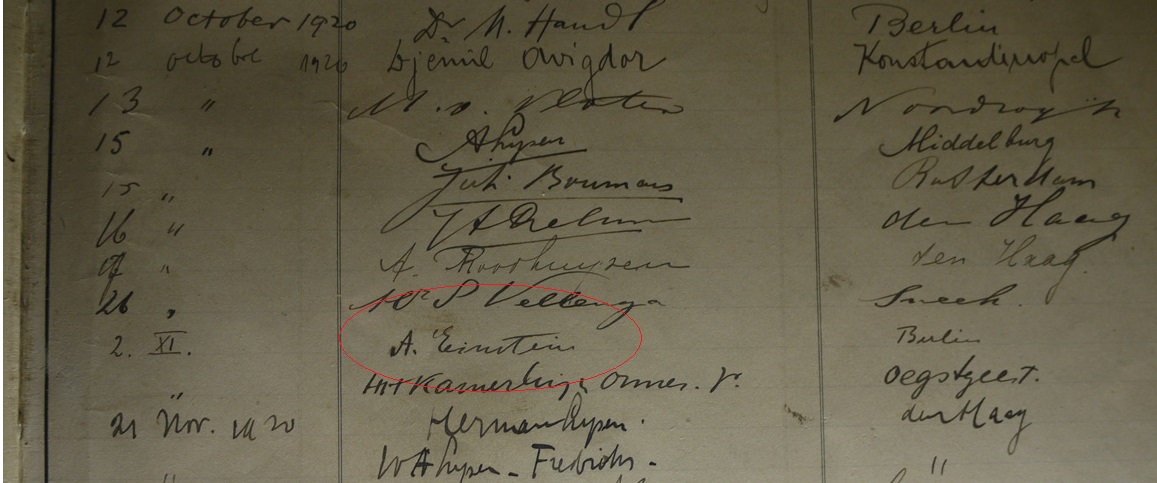 12 October 1920 Dr M. Handl Berlin
12 octobre 1920 Djémil Avigdor Konstantinopel
13 " M. v. Vloten Noordwyk
15 " Middelburg
15 " Boumans Rotterdam
16 " den Haag
" A. Rooshuyzen den Haag.
26 " Mr S Vellenga Sneek.
2. XI. A. Einstein Berlin
" HH Kamerlingh Onnes. Jr. Oegstgeest.
21 Nov. 1920 Herman den Haag
" "